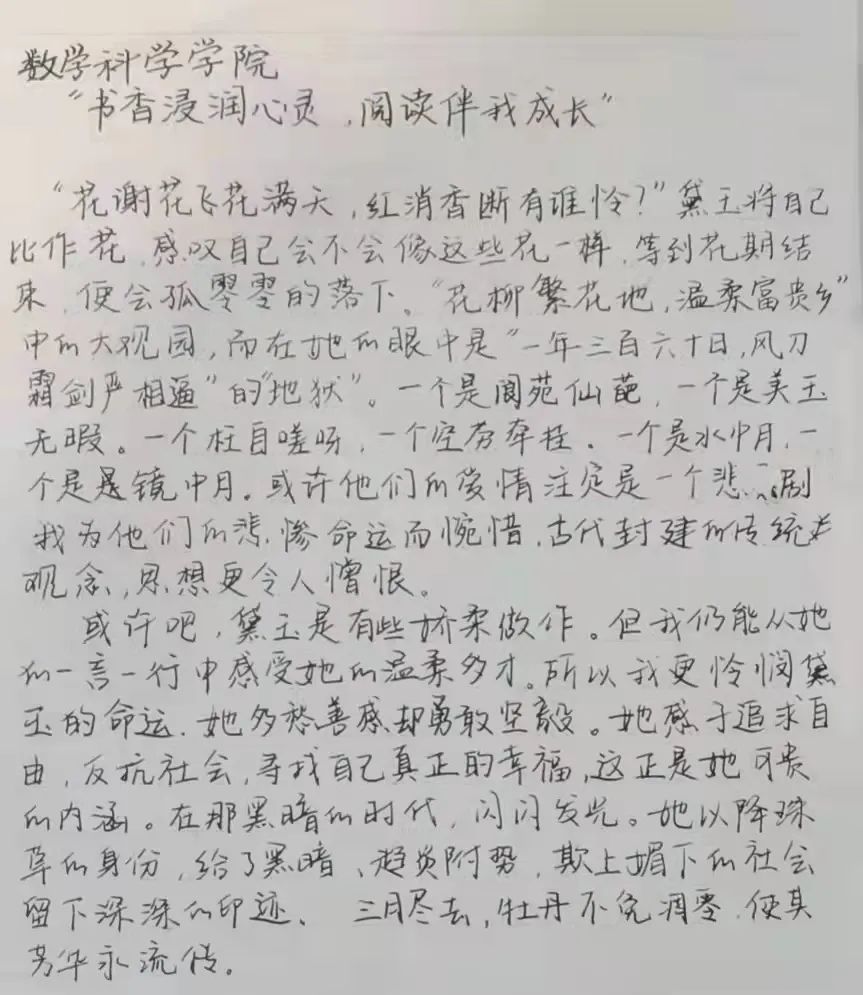 数学科学学院
“书香浸润心灵，阅读伴我成长”
“花谢花飞花满天，红消香断有谁怜？”黛玉将自己
比作花，感叹自己会不会像这些花一样，等到花期结
束，便会孤零零的落下。“花柳繁花地，温柔富贵乡”
中的大观园，而在她的眼中是“一年三百六十日，风刀
霜剑严相逼”的“地狱”。一个是阆苑仙葩，一个是美玉
无暇。一个枉自嗟呀，一个空劳牵挂。一个是水中月，一
个是是镜中月。或许他们的爱情注定是一个悲剧
我为他们的悲惨命运而惋惜，古代封建的传统
观念，思想更令人憎恨。
或许吧，黛玉是有些娇柔做作。但我仍能从她
的一言一行中感受她的温柔多才。所以我更怜悯黛
玉的命运。她多愁善感却勇敢坚毅。她感于追求自
由，反抗社会，寻找自己真正的幸福，这正是她可贵
的内涵。在那黑暗的时代，闪闪发光。她以降珠
草的身份，给了黑暗、趋炎附势，欺上媚下的社会
留下深深的印迹。三月尽去，牡丹不免凋零，使其
芳华永流传。